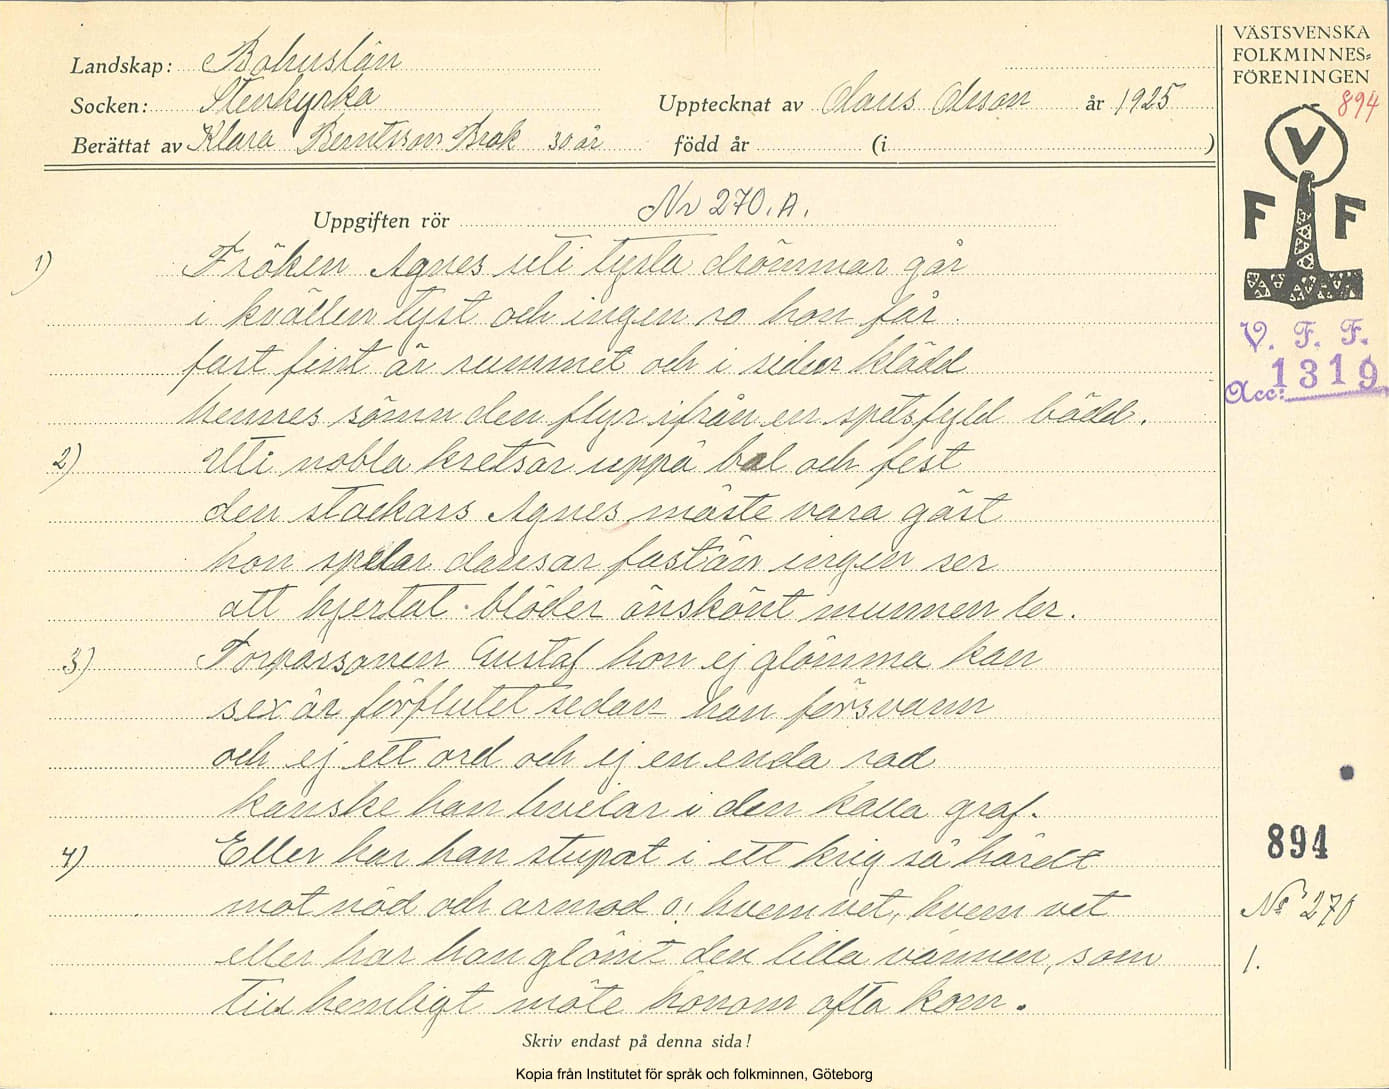 Landskap: Bohuslän
Socken: Stenkyrka
Upptecknat av Olaus Olsson år 1925
Berättat av Klara Berntsson Brok 30 år född år (i )
Uppgiften rör Nr 270. A.
1) Fröken Agnes uti tysta drömmar går
i kvällen tyst och ingen ro hon får
fast fint är rummet och i siden klädd
hennes sömn den flyr ifrån en spetsfyld bädd.
2) Uti nobla kretsar uppå bal och fest
den stackars Agnes måste vara gäst
hon spelar dansar fastän ingen ser
att hjertat blöder önskönt munnen ler.
3) Torparsonen Gustaf hon ej glömma kan
sex år förflutet sedan han försvann
och ej ett ord och ej en enda rad
kanske han hvilar i den kalla graf.
4) Eller har han stupat i ett krig så hårdt
mot nöd och armod o! hvem vet, hvem vet
eller har han glömt den lilla vännen, som
till hemligt möte honom ofta kom.
Skriv endast på denna sida!
Kopia från Institutet för språk och folkminnen, Göteborg
VÄSTSVENSKA
FOLKMINNES=
FÖRENINGEN
894
V
F F
V. F. F.
Acc: 1319
894
No 270
1.